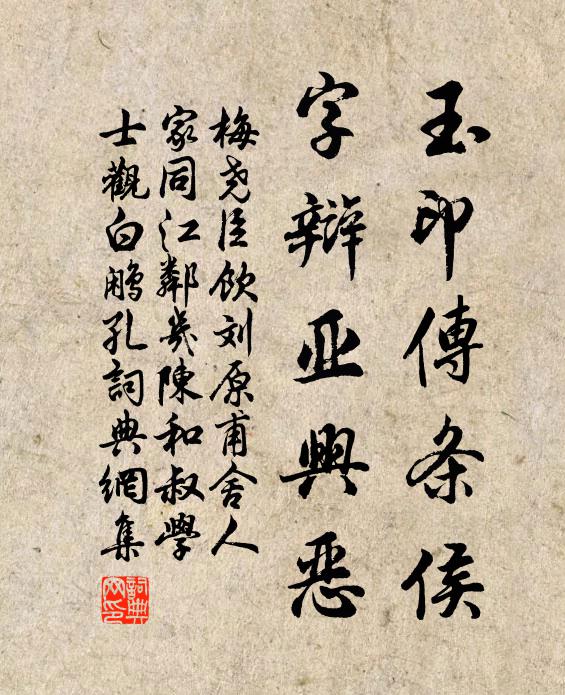 玉印傳条侯
字辯亚興惡
梅尧臣飲刘原甫舍人
家同江鄰幾陳和叔學
士觀白鷳孔詞典網集
詞典网印